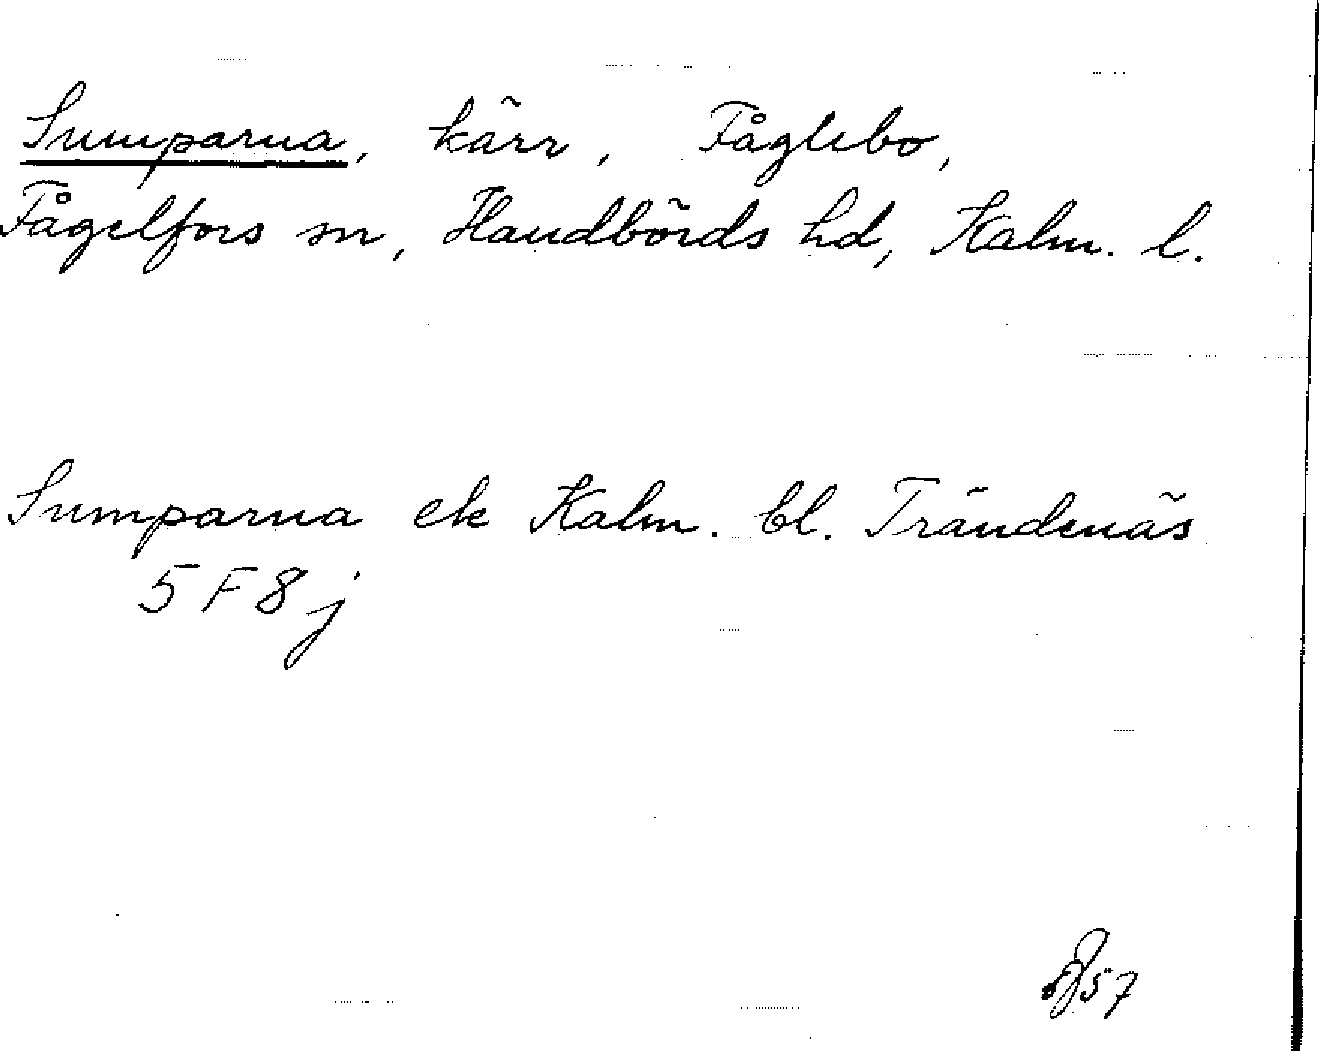 Sumparna, kärr, Fåglebo,
Fågelfors sn, Handbörds hd, Kalm. l.
Sumparna ek Kalm. bl. Trändenäs
5 F 8 j
57